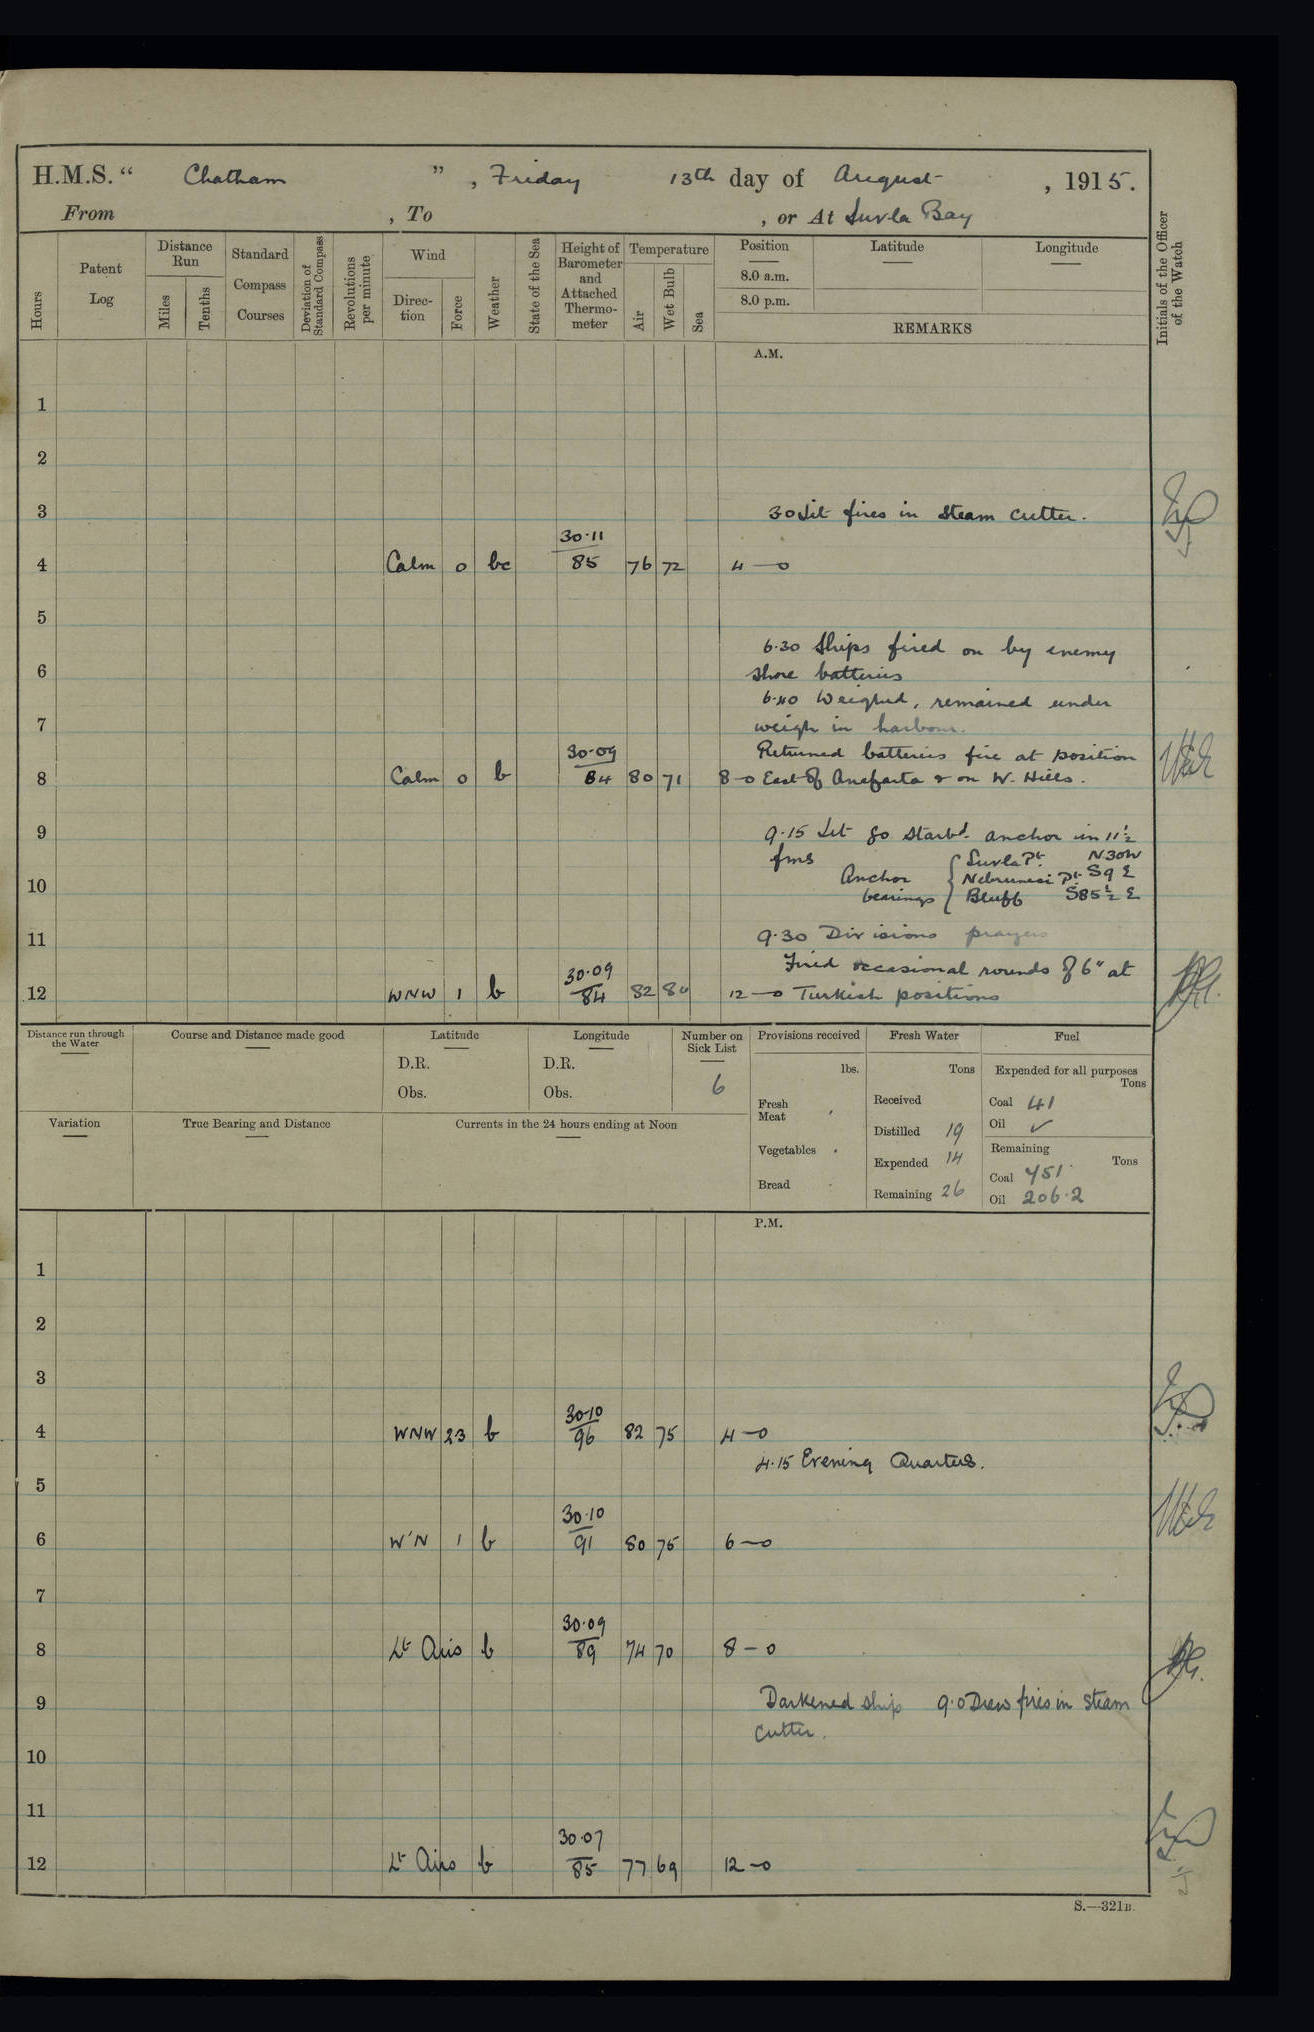 H.M.S. “ Chatham ” , Friday 13th day of August , 1915.
From , To , or At Suvla Bay
Hours
Patent Log
Distance Run
Miles
Tenths
Standard Compass Courses
Deviation of Standard Compass
Revolutions per minute
Wind
Direction
Force
Weather
State of the Sea
Height of Barometer and Attached Thermometer
Temperature
Air
Wet Bulb
Sea
Position
8.0 a.m.
8.0 p.m.
Latitude
Longitude
REMARKS
Initials of the Officer of the Watch
A.M.
1
2
3 30 Lit fires in Steam Cutter.
30.11
4 Calm 0 bc 85 76 72 4—0
5
6.30 Ships fired on by enemy
6 shore batteries
6.40 Weighed, remained under
7 weigh in harbour.
30.09 Returned batteries fire at position
8 Calm 0 b 84 80 71 8—0 East of Anafarta & on W. Hills.
9 9.15 Let go Starbd. anchor in 11½
fms
Anchor bearings { Suvla Pt. N30W
10 Nebrunesi Pt. S9E
Bluff S85½E
11 9.30 Divisions prayers
30.09 Fired occasional rounds of 6" at
12 WNW 1 b 84 82 80 12—0 Turkish positions
Distance run through the Water
Course and Distance made good
Latitude
D.R.
Obs.
Longitude
D.R.
Obs.
Number on Sick List
6
Provisions received
lbs.
Fresh Meat
Vegetables
Bread
Fresh Water
Tons
Received
Distilled 19
Expended 14
Remaining 26
Fuel
Expended for all purposes
Tons
Coal 41
Oil ✓
Remaining
Tons
Coal 451
Oil 206.2
Variation
True Bearing and Distance
Currents in the 24 hours ending at Noon
P.M.
1
2
3
30.10
4 WNW 23 b 96 82 75 4—0
4.15 Evening Quarters.
5
30.10
6 W'N 1 b 91 80 75 6—0
7
30.09
8 Lt Airs b 89 74 70 8—0
9 Darkened ship 9.0 Drew fires in Steam
Cutter.
10
11
30.07
12 Lt Airs b 85 77 69 12—0
S.—321B.